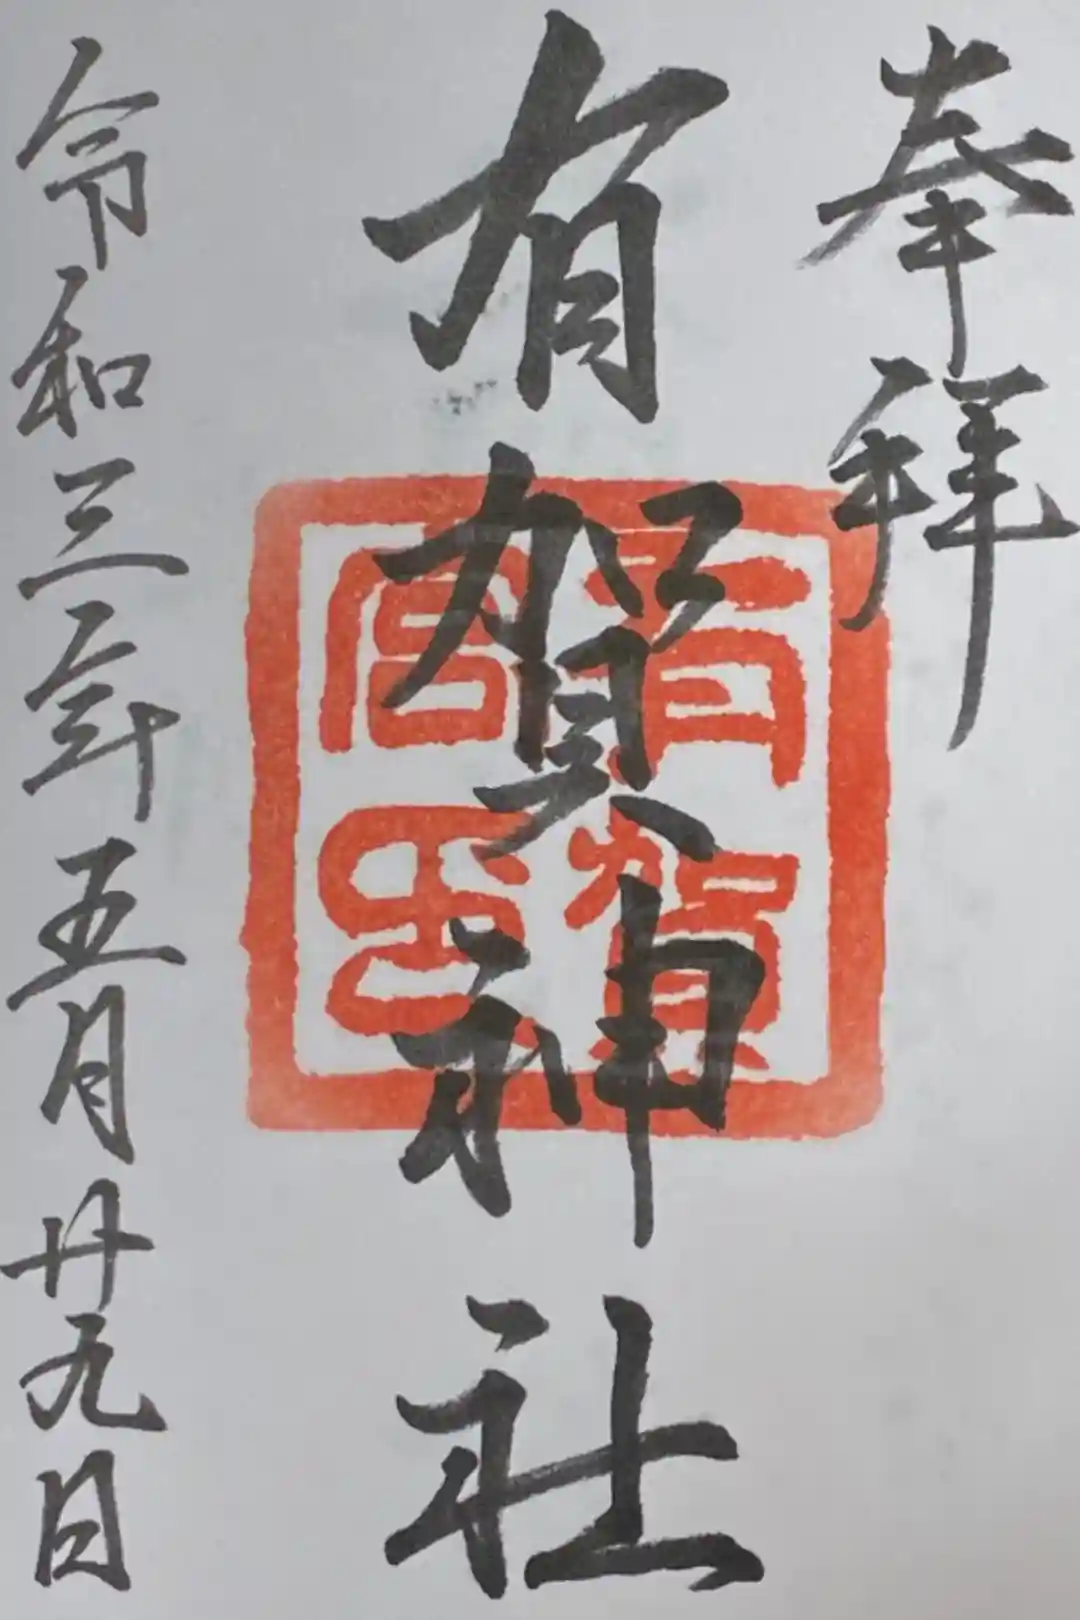 奉拝
有賀神社
有賀
宮印
令和三年五月廿九日